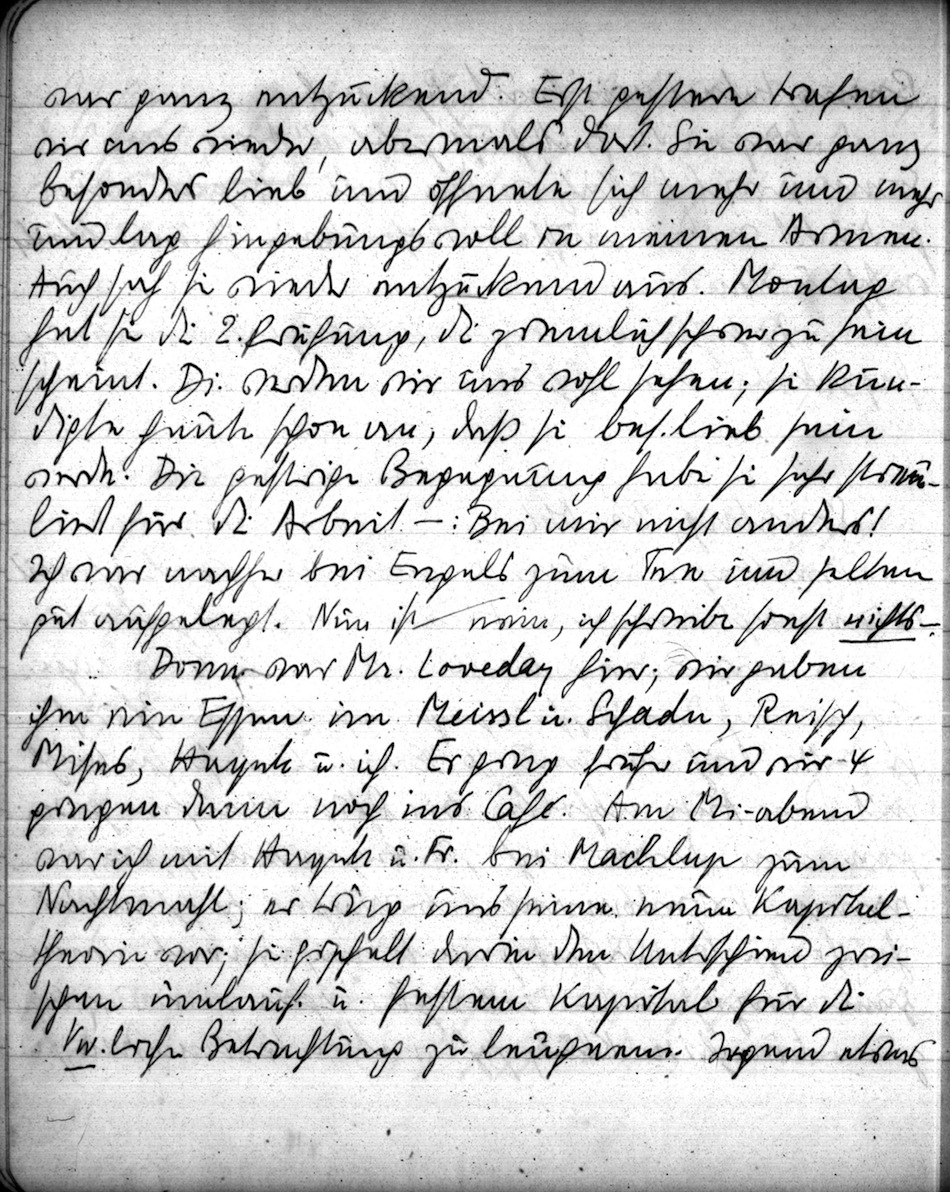 war ganz entzückend. Erst gestern trafen
wir uns wieder, abermals dort. Sie war ganz
besonders lieb und öffnete sich mehr und mehr
und lag hingebungsvoll in meinen Armen.
Auch sah sie wieder entzückend aus. Montag
hat sie die 2. Prüfung, die ziemlich schwer zu sein
scheint. Di. werden wir uns wohl sehen; sie kün-
digte heute schon an, daß sie bes. lieb sein
werde. Die gestrige Begegnung habe sie sehr stimu-
liert für die Arbeit –: Bei mir nicht anders!
Ich war nachher bei Engels zum Tee und selten
gut aufgelegt. Nun ist – nein, ich schreibe sonst nichts –.
Donn. war Mr. Loveday hier; wir gaben
ihm ein Essen im Meissl u. Schadn, Reisch,
Mises, Hayek u. ich. Er ging früher und wir 4
gingen dann noch ins Café. Am Mi-abend
war ich mit Hayek u. Fr. bei Machlup zum
Nachtmahl; er trug uns seine neue Kapital-
theorie vor; sie gipfelt darin den Unterschied zwi-
schen umlauf. u. festem Kapital für die
Betrachtung zu leugnen. Irgend etwas